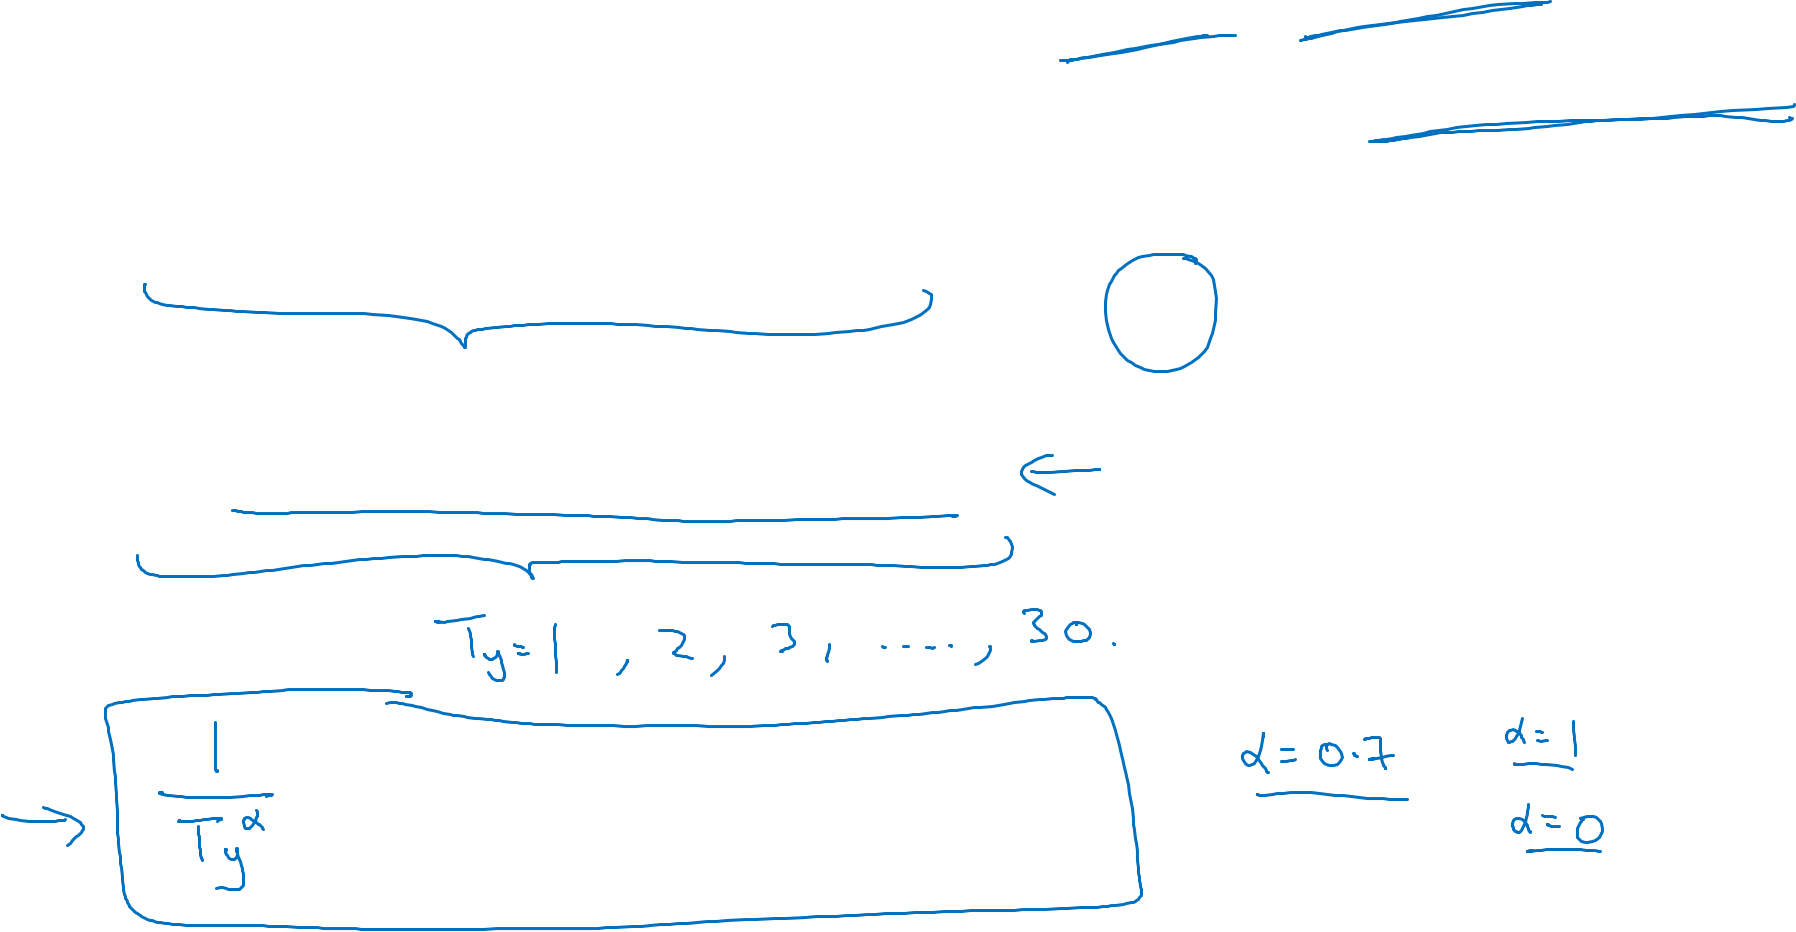 Ty = 1 , 2 , 3 , ····· , 30.
1 / Ty^α
α = 0.7
α = 1
α = 0